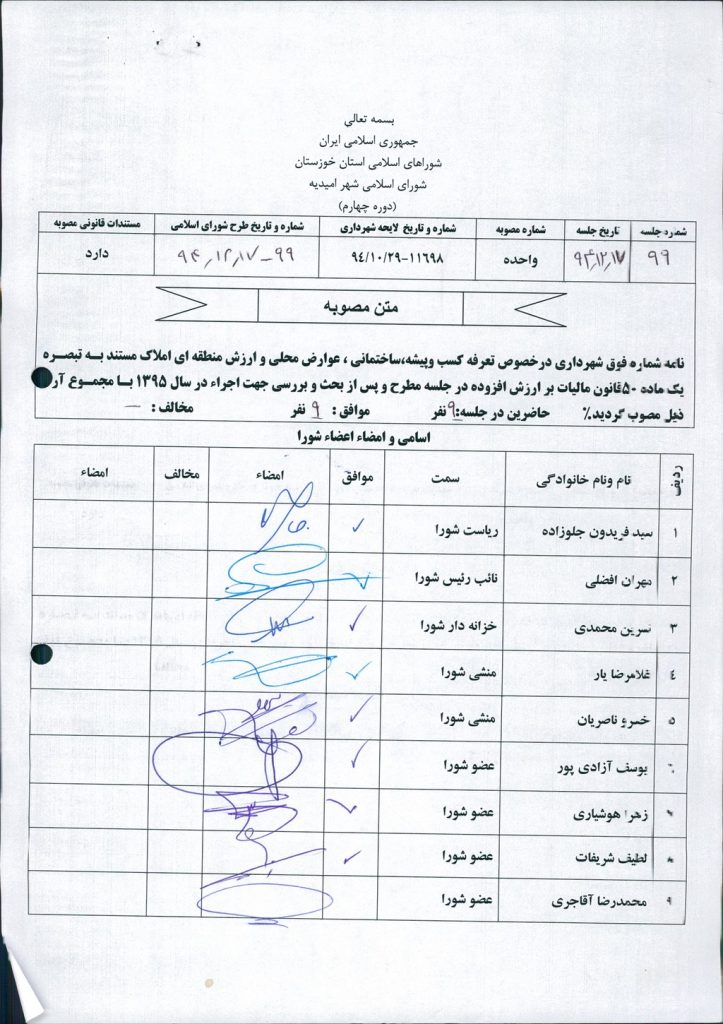 بسمه تعالی
جمهوری اسلامی ایران
شوراهای اسلامی استان خوزستان
شورای اسلامی شهر امیدیه
(دوره چهارم)
شماره جلسه تاریخ جلسه شماره مصوبه شماره و تاریخ لایحه شهرداری شماره و تاریخ طرح شورای اسلامی مستندات قانونی مصوبه
۹۹ ۹۴,۱۲,۱۷ واحده ۹٤/۱۰/۲۹-۱۱٦۹۸ ۹۹_۹۴,۱۲,۱۷ دارد
متن مصوبه
نامه شماره فوق شهرداری درخصوص تعرفه کسب وپیشه،ساختمانی ، عوارض محلی و ارزش منطقه ای املاک مستند به تبصره
یک ماده ۵۰قانون مالیات بر ارزش افزوده در جلسه مطرح و پس از بحث و بررسی جهت اجراء در سال ۱۳۹۵ با مجموع آر
ذیل مصوب گردید٪ حاضرین در جلسه:۹نفر موافق : ۹ نفر مخالف : –
اسامی و امضاء اعضاء شورا
ردیف نام ونام خانوادگی سمت موافق امضاء مخالف امضاء
۱ سید فریدون جلوزاده ریاست شورا ✓
۲ مهران افضلی نائب رئیس شورا ✓
۳ نسرین محمدی خزانه دار شورا ✓
٤ غلامرضا یار منشی شورا ✓
۵ خسرو ناصریان منشی شورا ✓
یوسف آزادی پور عضو شورا ✓
زهرا هوشیاری عضو شورا ✓
لطیف شریفات عضو شورا ✓
۹ محمدرضا آقاجری عضو شورا